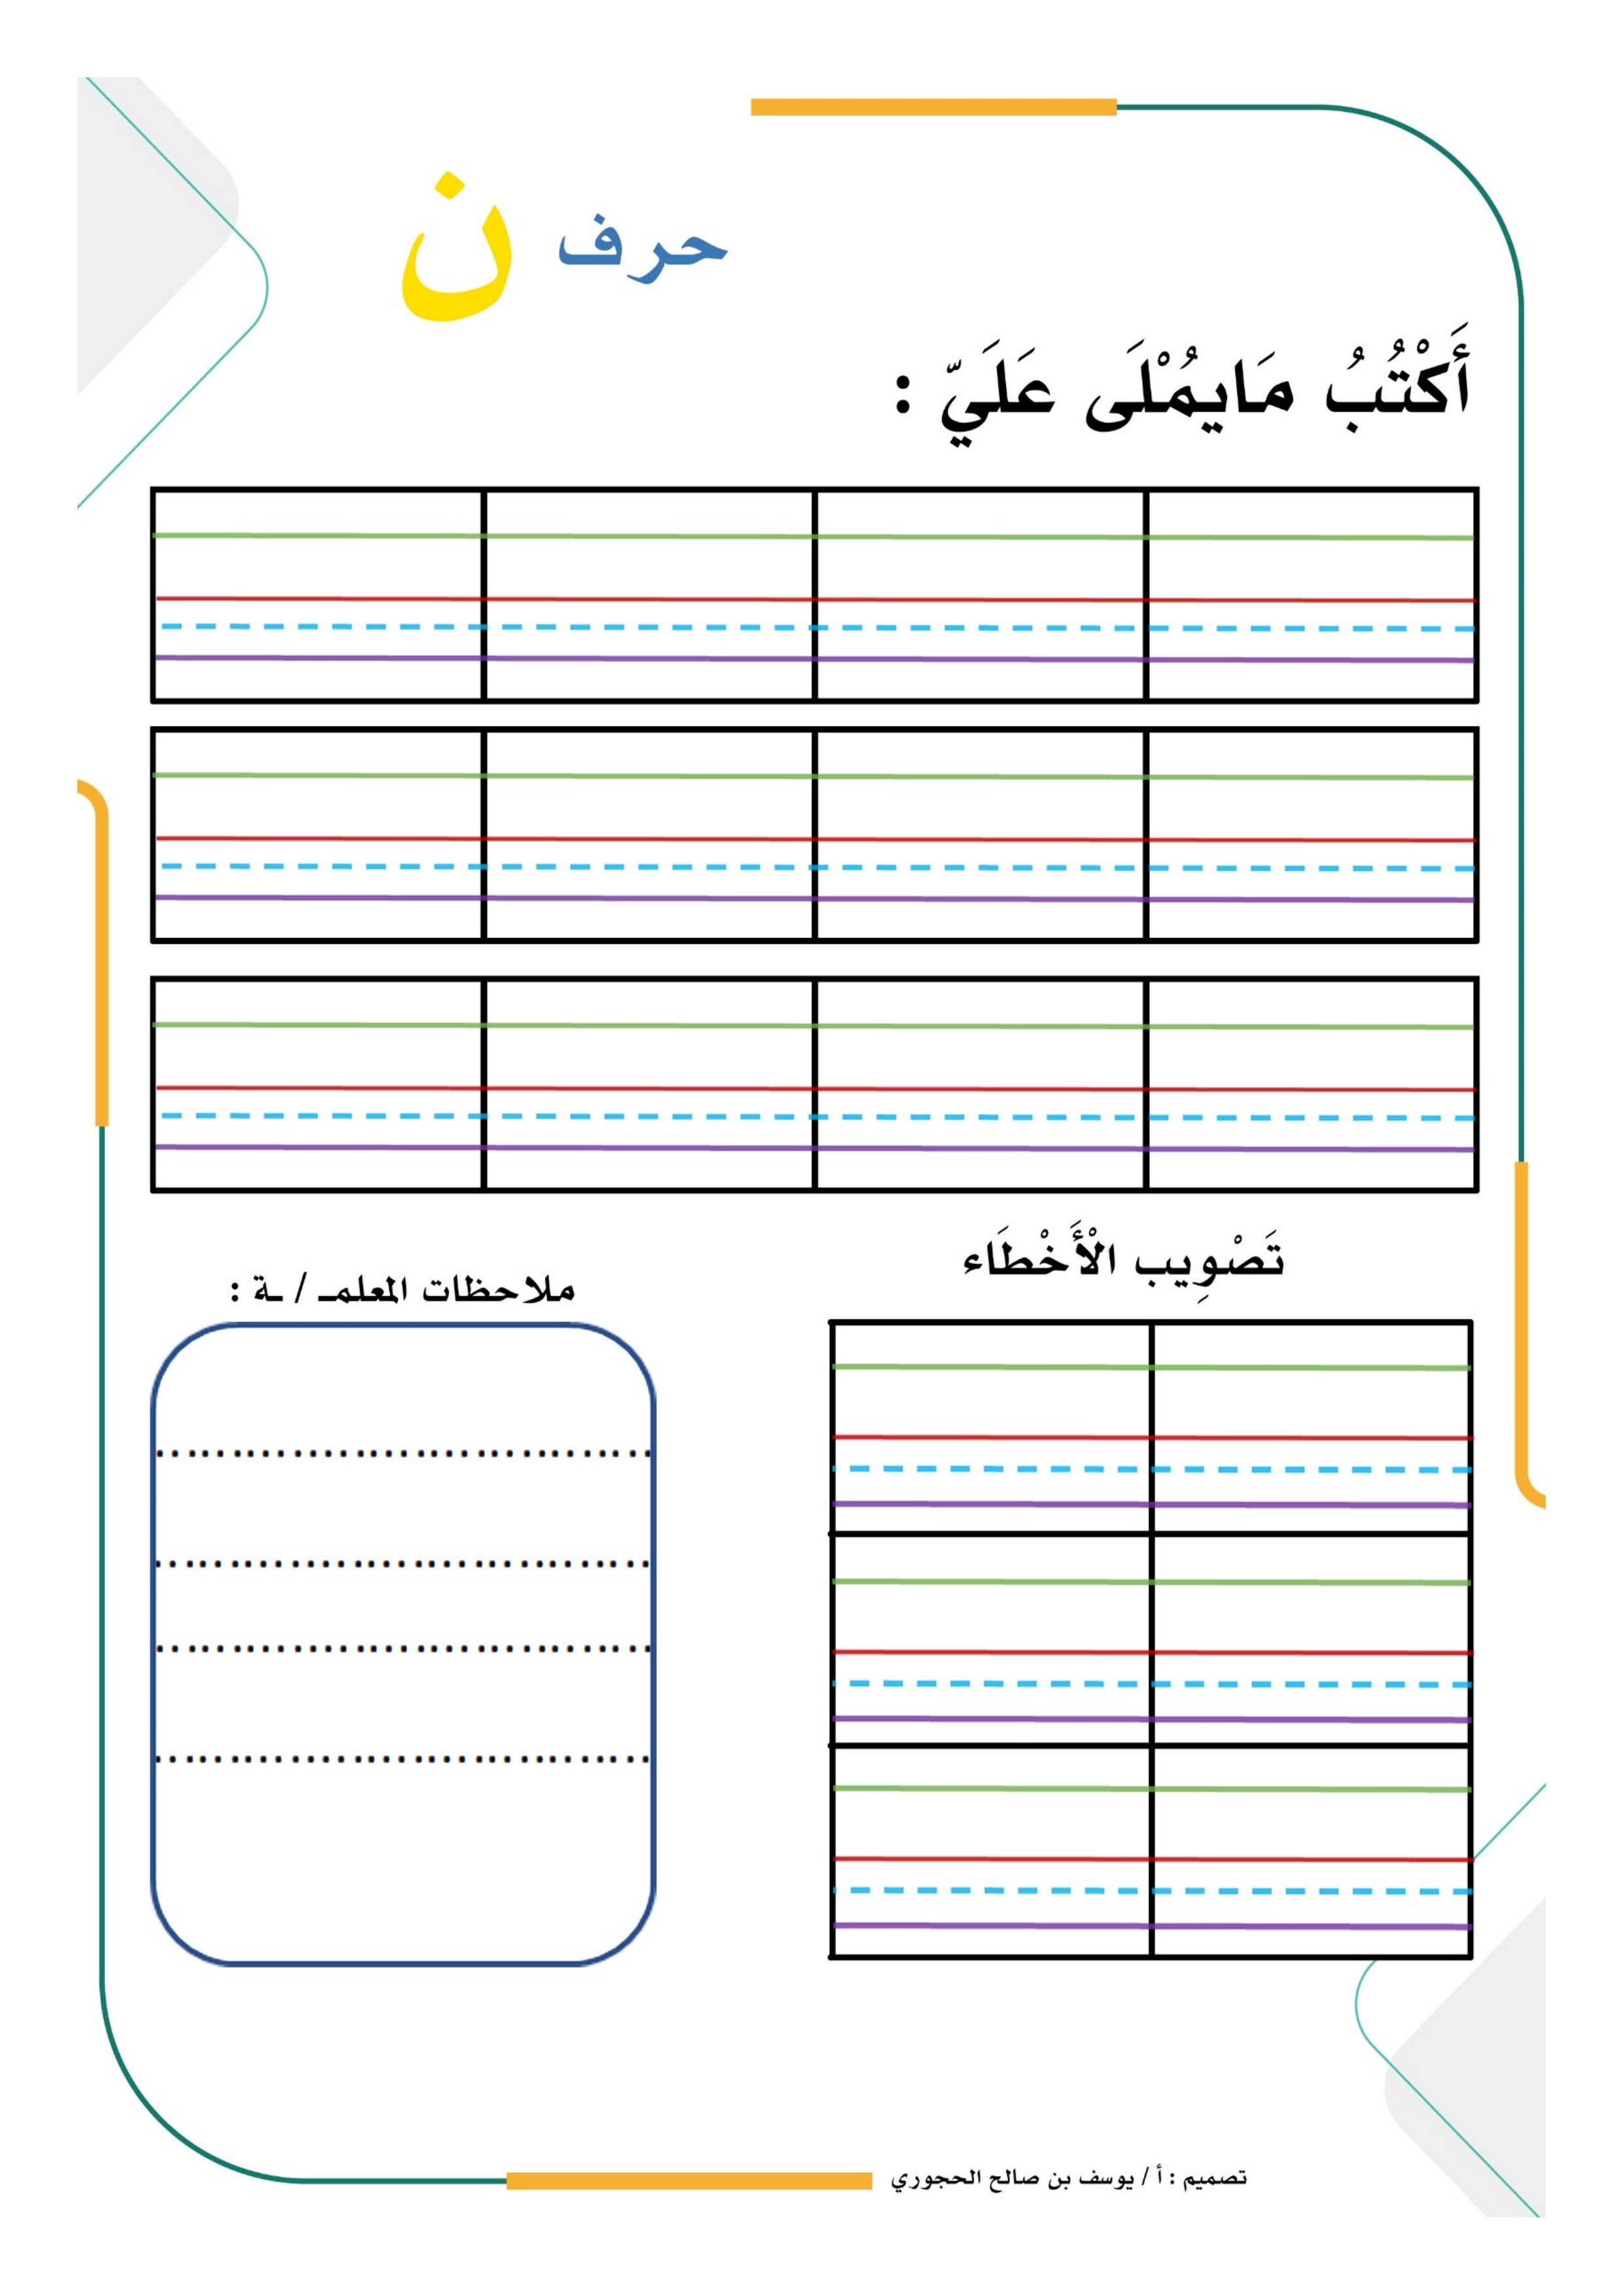 حرف ن
أَكْتُبُ مَايُمْلَى عَلَيّ :
تَصْوِيب الْأَخْطَاء
ملاحظات المعلمـ / ـة :
تصميم : أ / يوسف بن صالح الحجوري